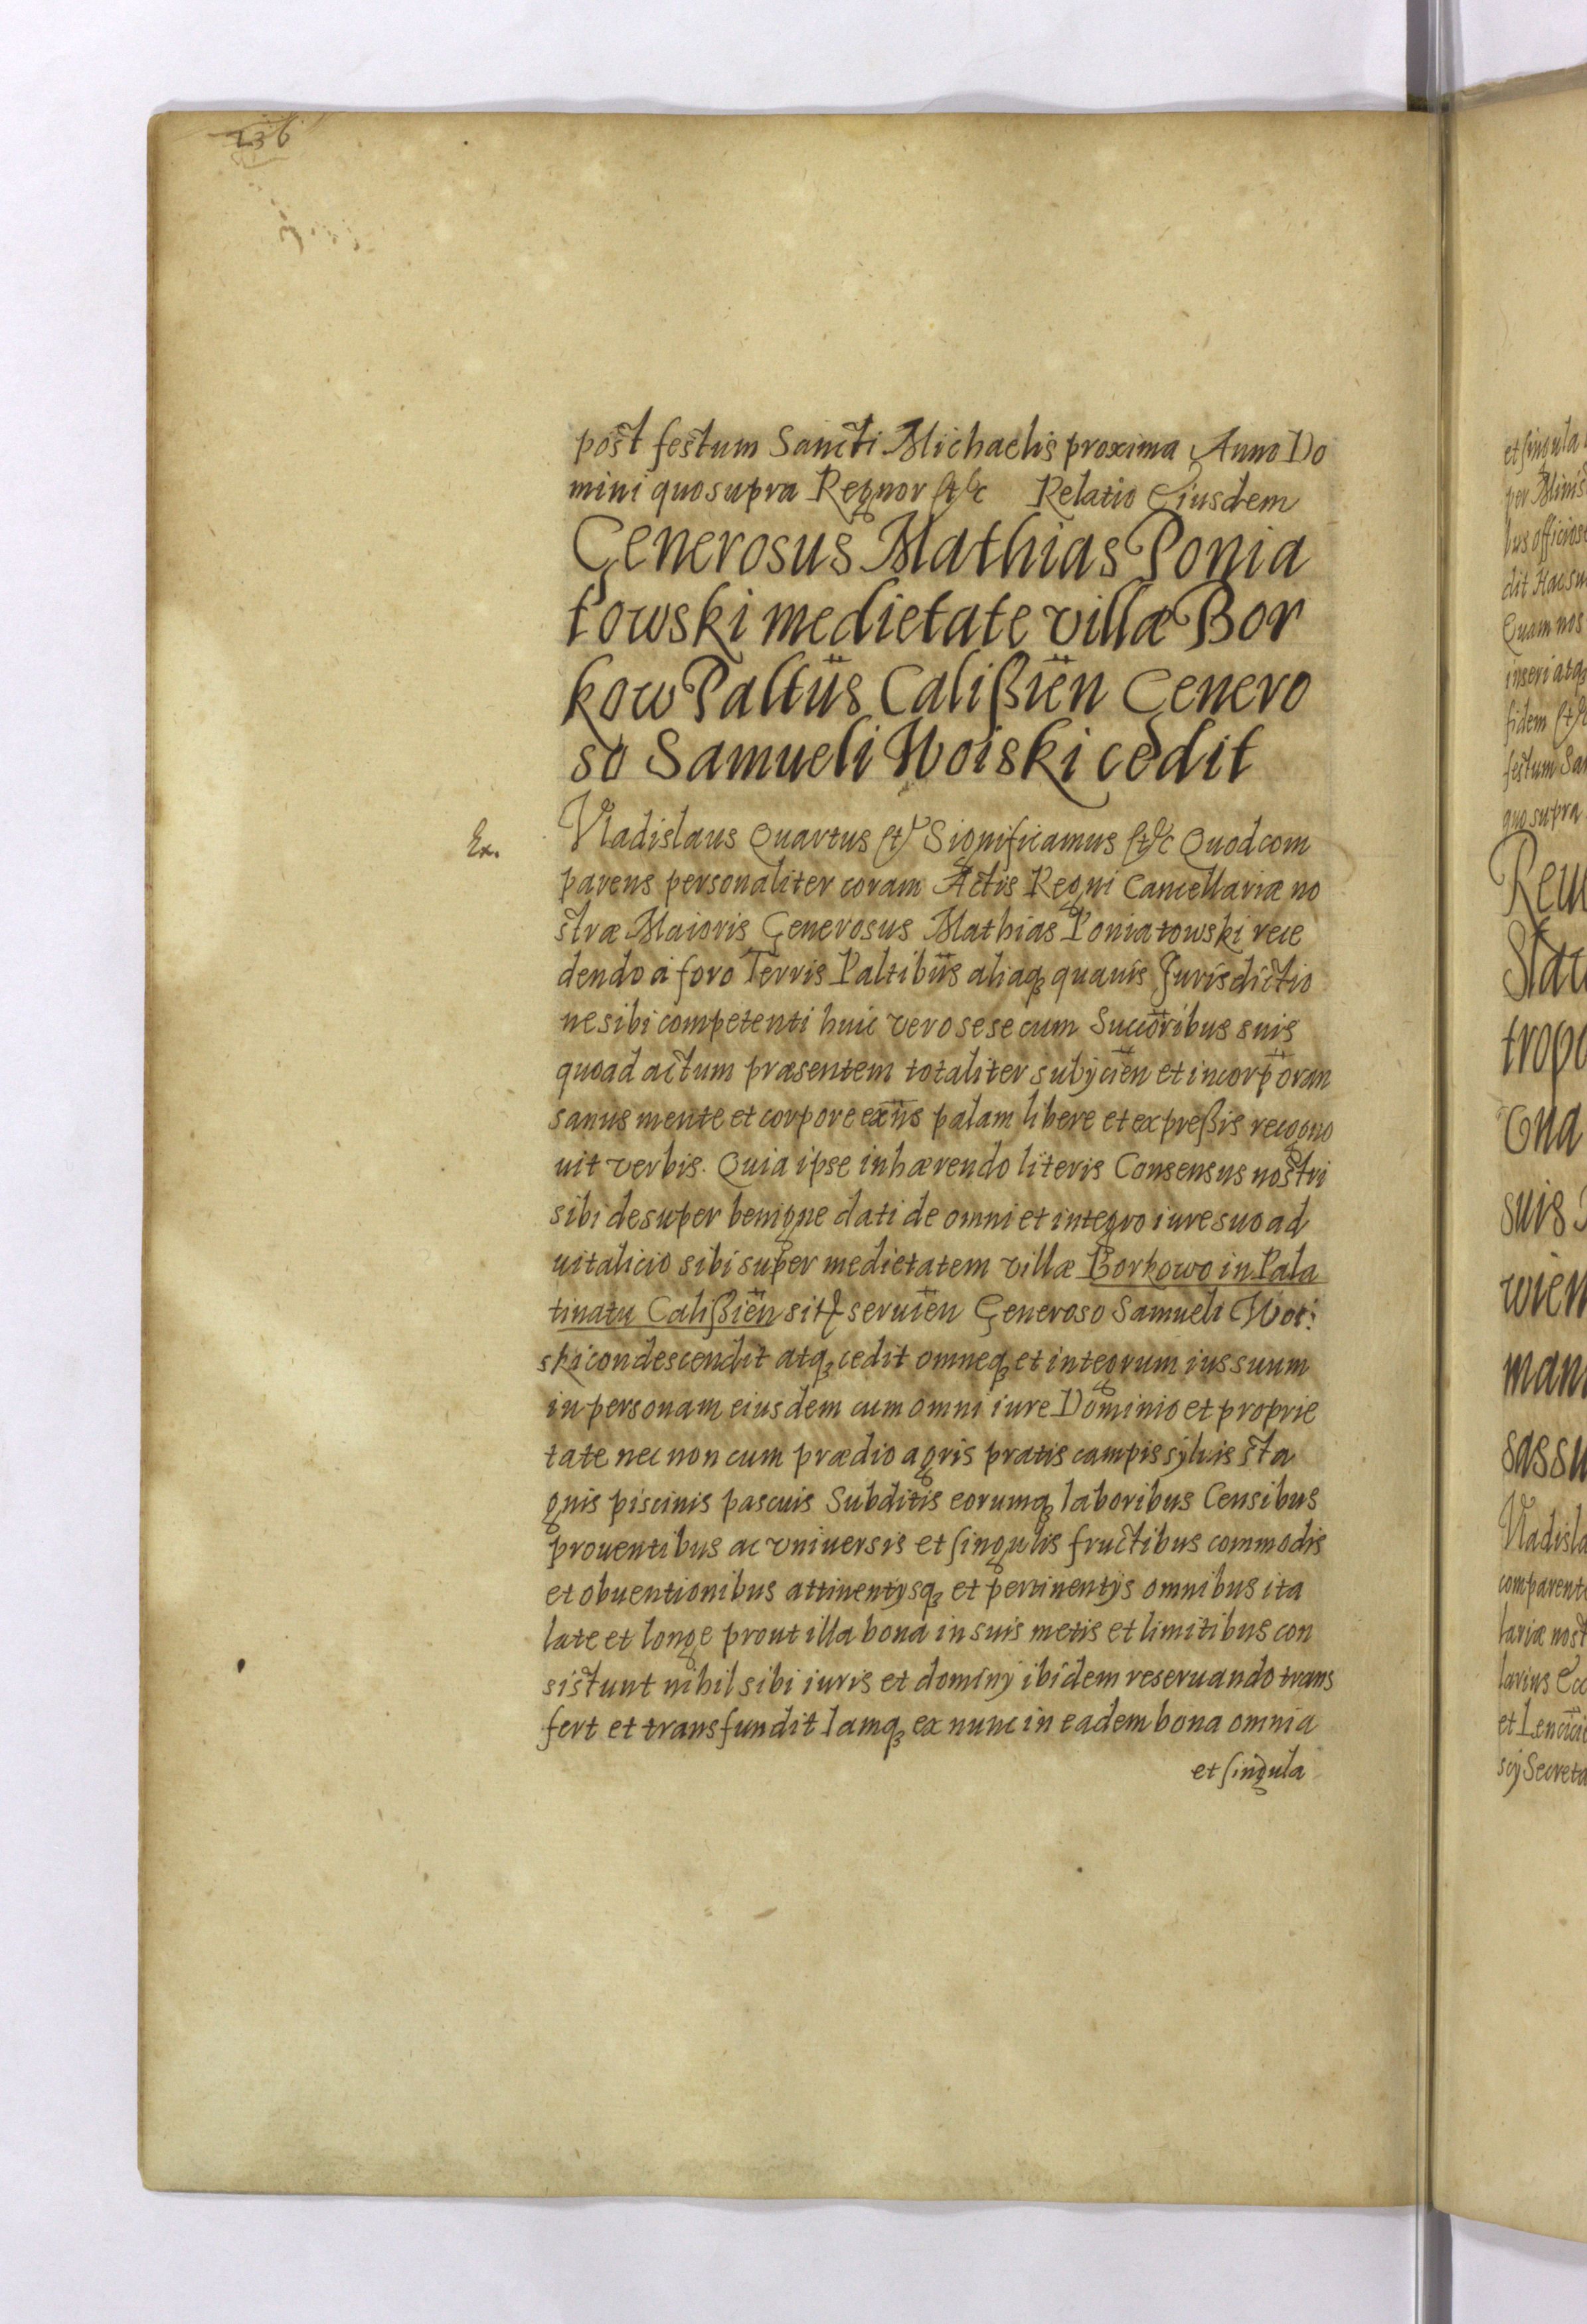 236
post festum Sancti Michaelis proxima Anno Do
mini quo supra Regnor etc Relatio Eiusdem
Generosus Mathias Ponia
towski medietate villæ Bor
kow Paltüs Calißien Genero
so Samueli Woiski cedit
Ex.
Vladislaus Quartus et Significamus etc Quod com
parens personaliter coram Actis Regni Cancellariæ no
stræ Maioris Generosus Mathias Poniatowski rece
dendo a foro Terris Paltibus aliaq quauis Jurisdictio
ne sibi competenti huic vero sese cum Succoribus suis
quoad actum præsentem totaliter subÿcien et incorporan
sanus mente et corpore exiis palam libere et expreßis recogno
uit verbis. Quia ipse inhærendo literis Consensus nostri
sibi desuper benigne dati de omni et integro iure suo ad
uitalicio sibi super medietatem villæ Borkowo in Pala
tinatu Calißien sit seruien Generoso Samueli Woi:
ski condescendit atq cedit omneq et integrum ius suum
in personam eiusdem cum omni iure Dominio et proprie
tate nec non cum prædio agris pratis campis syluis sta
gnis piscinis pascuis Subditis eorumq laboribus Censibus
prouentibus ac vniuersis et singulis fructibus commodis
et obuentionibus attinentÿsq et pertinentÿs omnibus ita
late et longe prout illa bona in suis metis et limitibus con
sistunt nihil sibi iuris et dominÿ ibidem reseruando trans
fert et transfundit Iamq ex nunc in eadem bona omnia
et singula
et singula
per Minis
bus officiose
dit Hac su
Quam nos
inseri atq
fidem etc
festum San
quo supra
Reu
Stat
tropo
Cna
suis
wien
man
sassu
Vladisla
comparent
lariæ nost
larius
et Lencici
scÿ Secreta